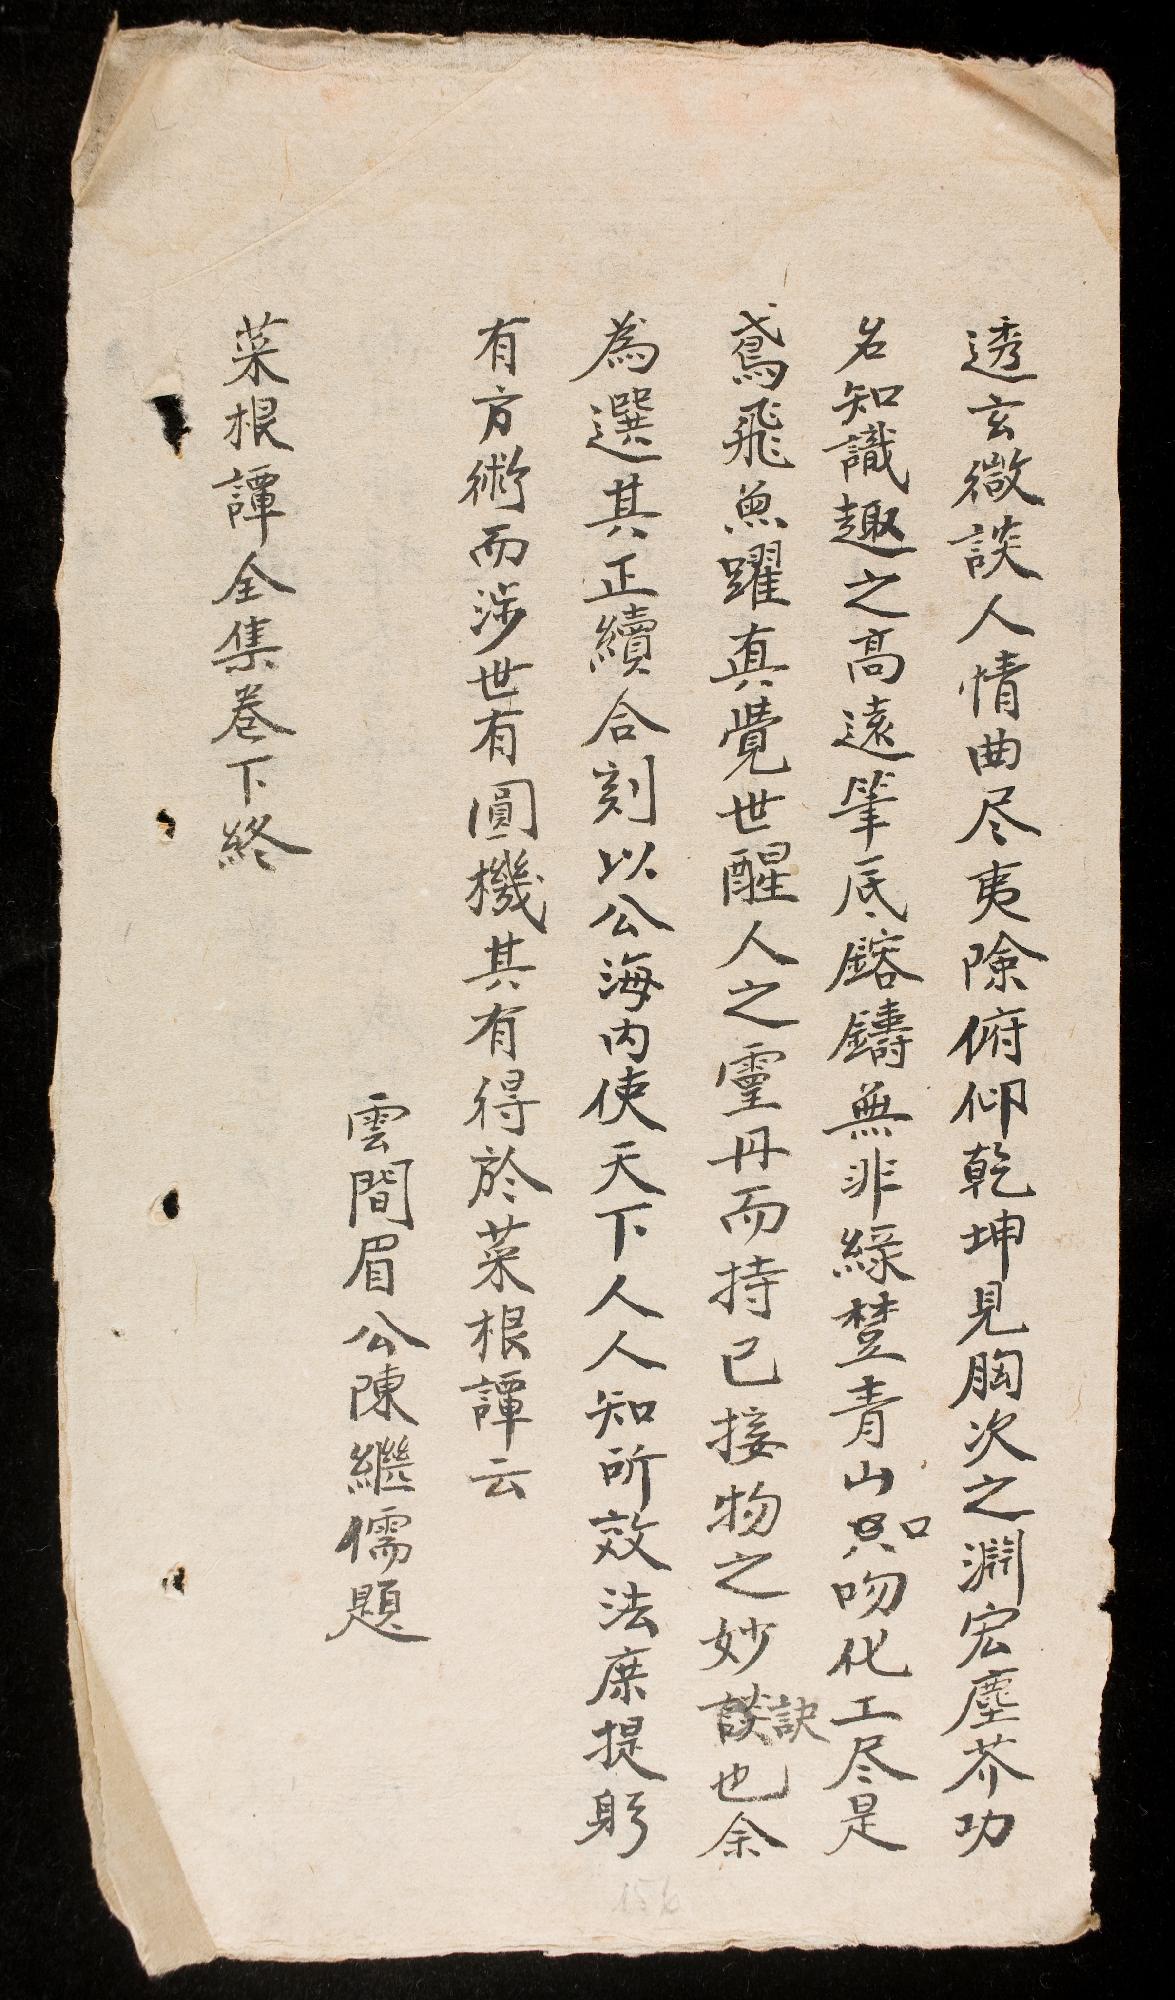 透玄微談人情曲尽夷險俯仰乾坤見胸次之淵宏塵芥功
名知識趣之高遠筆底鎔鑄無非綠埜青山口吻化工尽是
鳶飛魚躍真覺世醒人之靈丹而持己接物之妙訣也余
為選其正續合刻以公海內使天下人人知所效法庶提躬
有方術而涉世有圓機其有得於菜根譚云
雲間眉公陳繼儒題
菜根譚全集卷下終
156